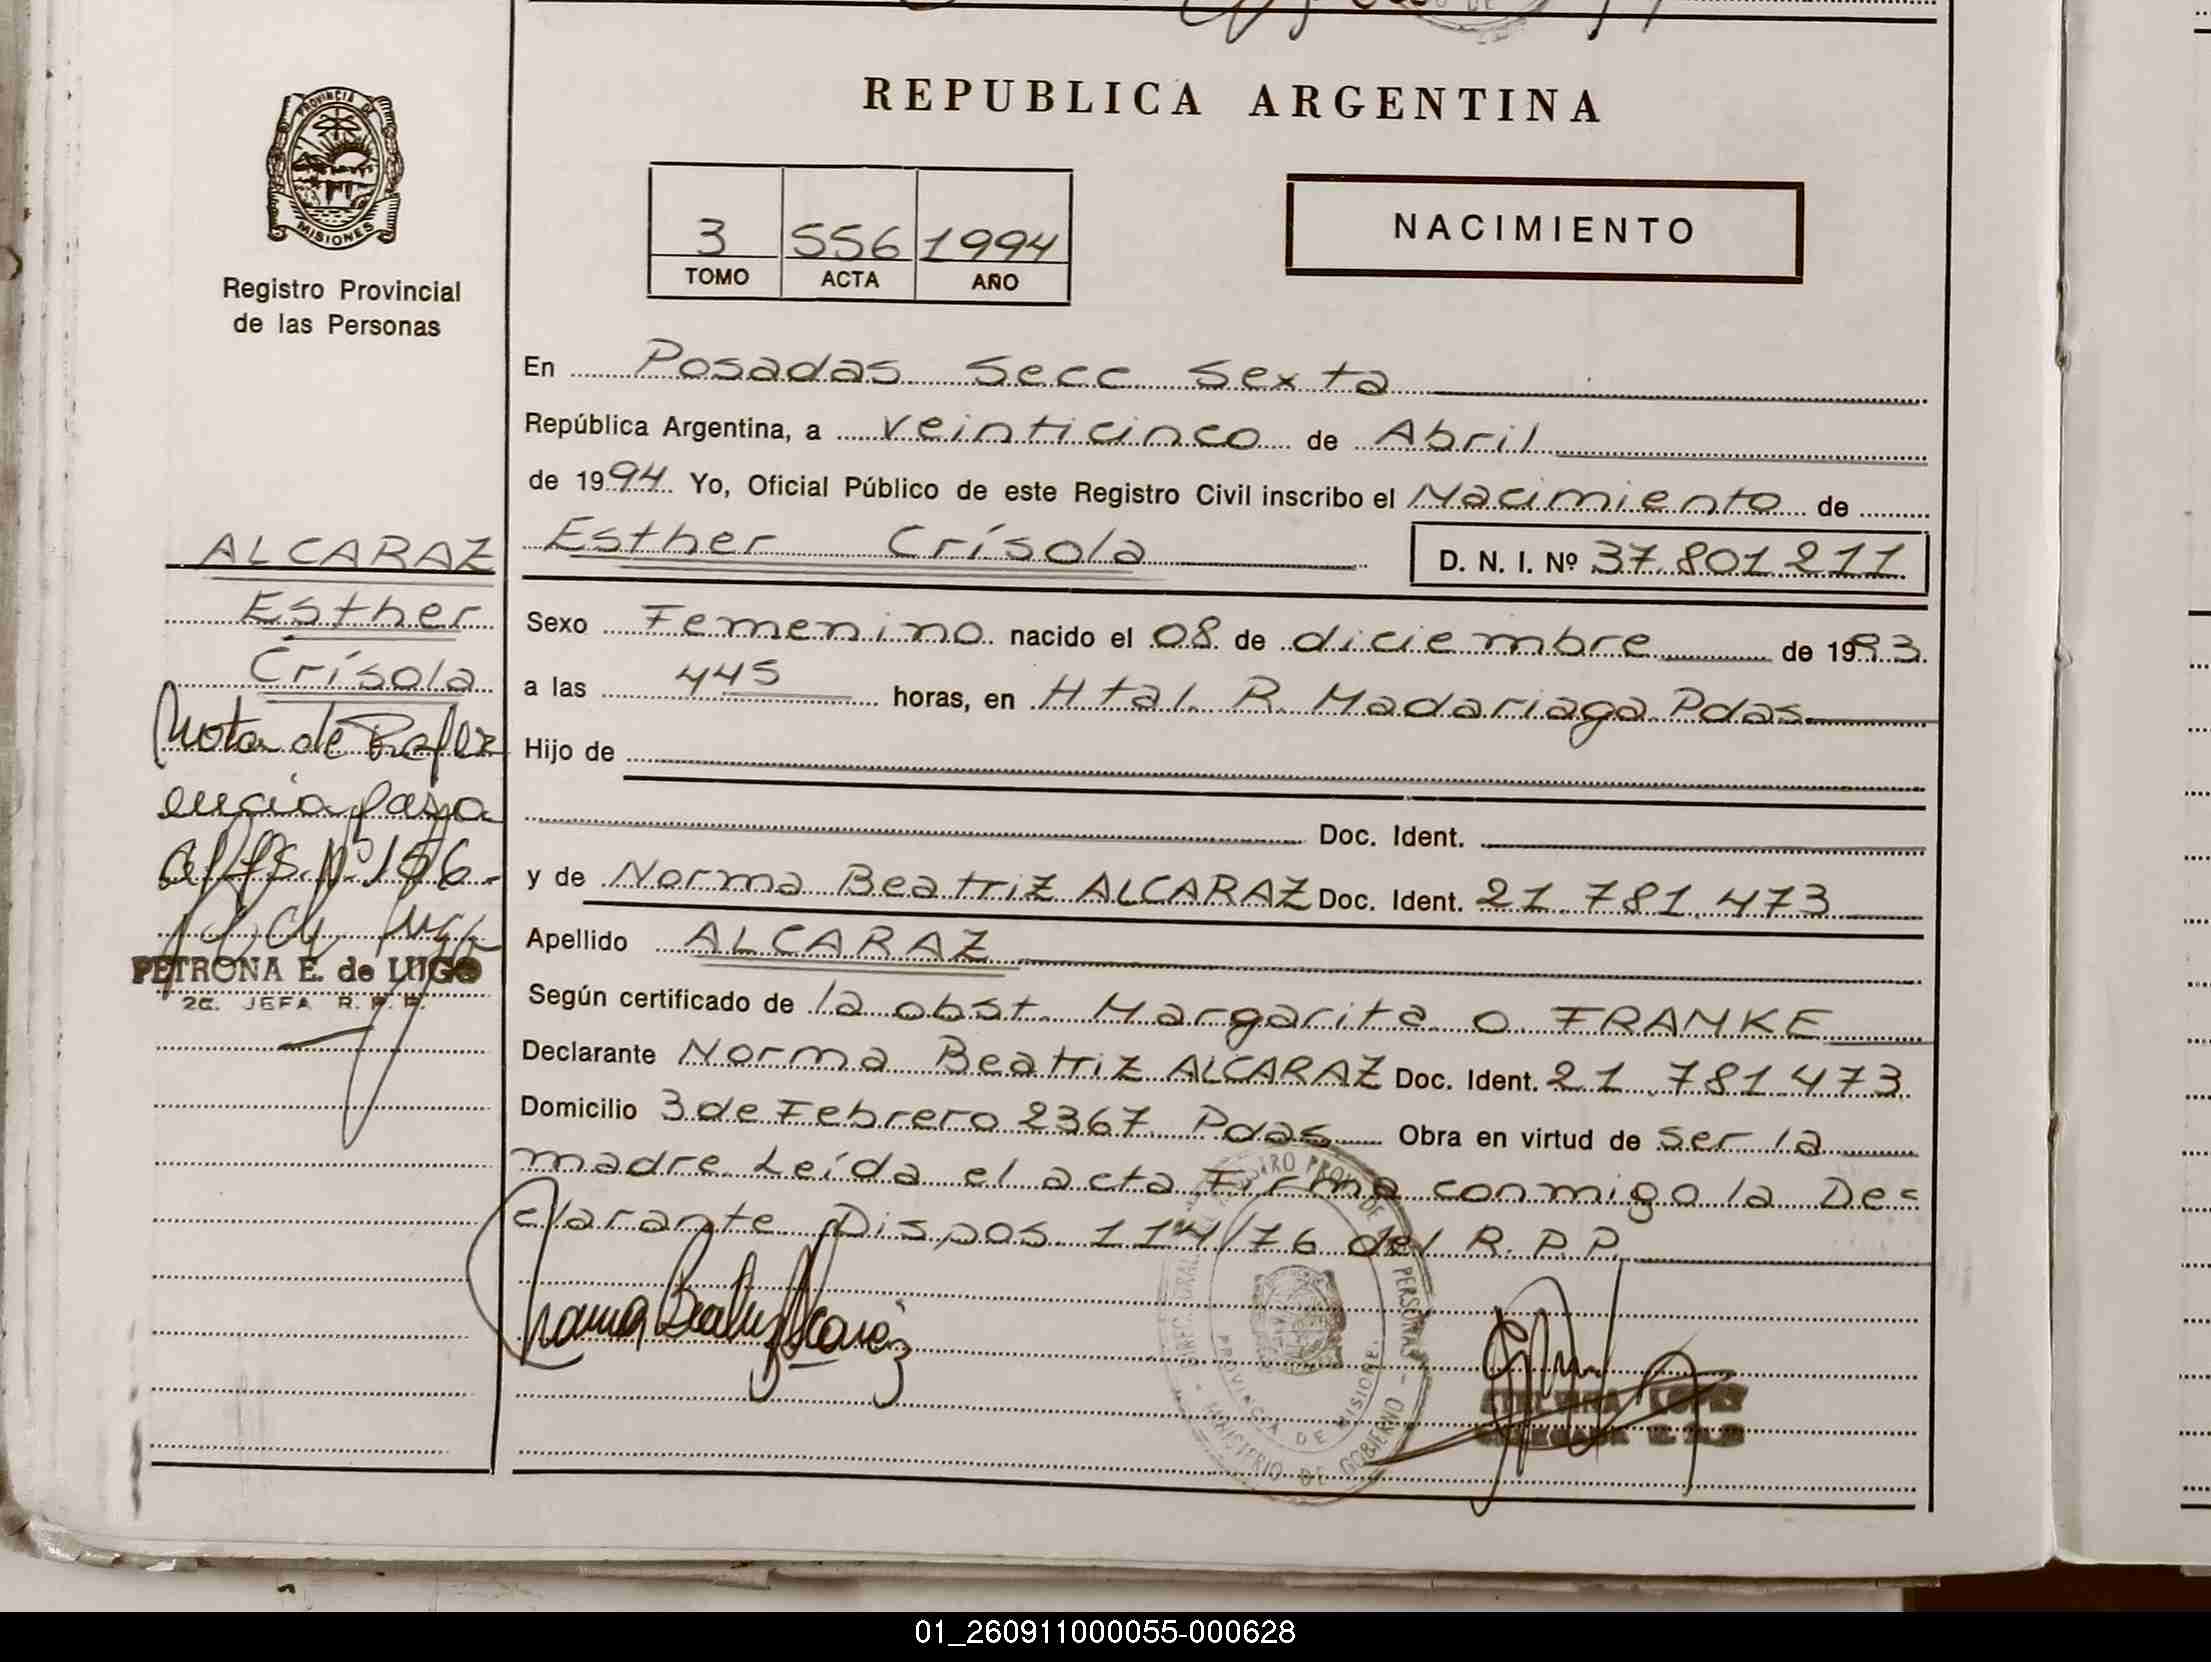 REPUBLICA ARGENTINA
PROVINCIA DE
MISIONES
Registro Provincial
de las Personas
3 556 1994
TOMO ACTA AÑO
NACIMIENTO
En Posadas Secc Sexta
República Argentina, a veinticinco de Abril
de 1994 Yo, Oficial Público de este Registro Civil inscribo el Nacimiento de
Esther Crísola D. N. I. Nº 37.801.211
Sexo Femenino nacido el 08 de diciembre de 1993
a las 445 horas, en Htal. R. Madariaga Pdas
Hijo de
Doc. Ident.
y de Norma Beatriz ALCARAZ Doc. Ident. 21.781.473
Apellido ALCARAZ
Según certificado de la obst. Margarita O. FRANKE
Declarante Norma Beatriz ALCARAZ Doc. Ident. 21.781.473
Domicilio 3 de Febrero 2367 Pdas Obra en virtud de ser la
madre. Leída el acta Firma conmigo la Dec
clarante. Dispos. 114/76 del R. P. P.
ALCARAZ
Esther
Crísola
Nota de Refer
encia pasa
al Nº 156.
PETRONA E. de LUGO
2a. JEFA R. P. P.
Norma Beatriz Alcaraz
PROVINCIA DE MISIONES
MINISTERIO DE GOBIERNO
LOPEZ
01_260911000055-000628